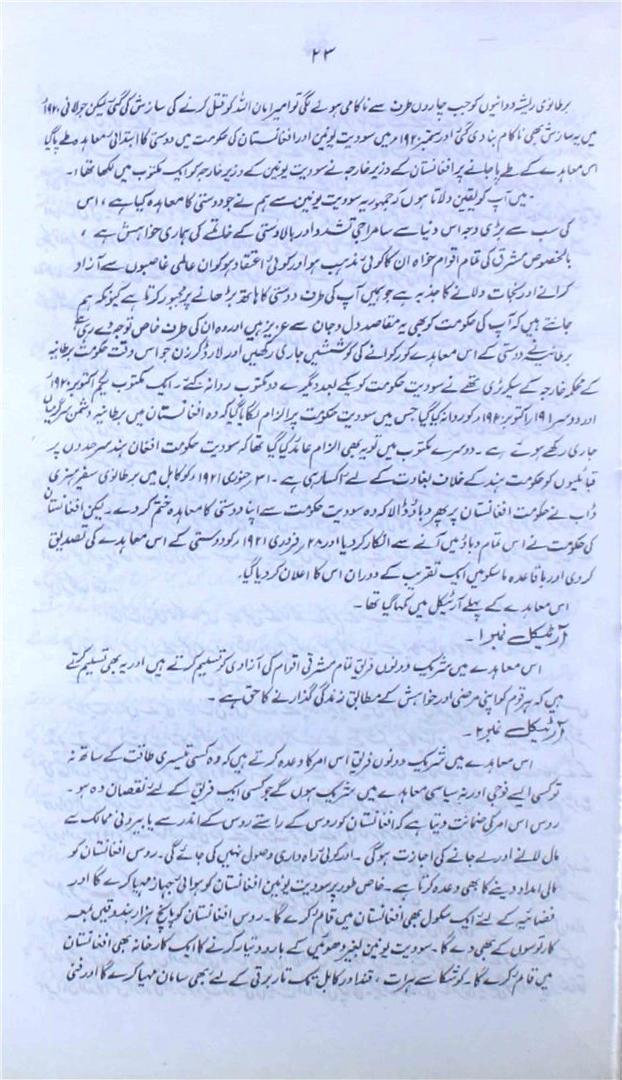 ۲۳
برطانوی ریشہ دوانیوں کو جب چاروں طرف سے ناکامی ہونے لگی تو امیر امان اللہ کو قتل کرنے کی سازش کی گئی لیکن جولائی ۱۹۲۰ء
میں یہ سازش بھی ناکام بنا دی گئی اور ستمبر ۱۹۲۰ء میں سودیت یونین اور افغانستان کی حکومت میں دوستی کا ابتدائی معاہدہ طے پا گیا
اس معاہدے کے طے پا جانے پر افغانستان کے وزیر خارجہ نے سودیت یونین کے وزیر خارجہ کو ایک مکتوب میں لکھا تھا:۔
میں آپ کو یقین دلاتا ہوں کہ جمہوریہ سودیت یونین سے ہم نے جو دوستی کا معاہدہ کیا ہے، اس
کی سب سے بڑی وجہ اس دنیا سے سامراجی تشدد اور بالادستی کے خاتمے کی ہماری خواہش ہے،
بالخصوص مشرق کی تمام اقوام خواہ ان کا کوئی مذہب ہو اور کوئی اعتقاد ہو کو ان عالمی غاصبوں سے آزاد
کرانے اور نجات دلانے کا جذبہ ہے جو ہمیں آپ کی طرف دوستی کا ہاتھ بڑھانے پر مجبور کرتا ہے کیونکہ ہم
جانتے ہیں کہ آپ کی حکومت کو بھی یہ مقاصد دل و جان سے عزیز ہیں اور وہ ان کی طرف خاص توجہ دے رہی ہے
برطانیہ نے دوستی کے اس معاہدے کو رکوانے کی کوششیں جاری رکھیں اور لارڈ کرزن جو اس وقت حکومت برطانیہ
کے محکمہ خارجہ کے سیکرٹری تھے نے سودیت حکومت کو یکے بعد دیگرے دو مکتوب روانہ کئے۔ ایک مکتوب یکم اکتوبر ۱۹۲۰ء
اور دوسرا ۱۹ اکتوبر ۱۹۲۰ء کو روانہ کیا گیا جس میں سودیت حکومت پر الزام لگایا گیا کہ وہ افغانستان میں برطانیہ دشمن سرگرمیاں
جاری رکھے ہوئے ہے۔ دوسرے مکتوب میں تو یہ بھی الزام عائد کیا گیا تھا کہ سودیت حکومت افغان ہند سرحدوں پر
قبائلیوں کو حکومت ہند کے خلاف بغاوت کے لئے اکسا رہی ہے۔ ۳۱ جنوری ۱۹۲۱ء کو کابل میں برطانوی سفیر ہنری
ڈاب نے حکومت افغانستان پر پھر دباؤ ڈالا کہ وہ سودیت حکومت سے اپنا دوستی کا معاہدہ ختم کر دے۔ لیکن افغانستان
کی حکومت نے اس تمام دباؤ میں آنے سے انکار کر دیا اور ۲۸ فروری ۱۹۲۱ء کو دوستی کے اس معاہدے کی تصدیق
کر دی اور باقاعدہ ماسکو میں ایک تقریب کے دوران اس کا اعلان کر دیا گیا۔
اس معاہدے کے پہلے آرٹیکل میں کہا گیا تھا۔
آرٹیکل نمبر ۱۔
اس معاہدے میں شریک دونوں فریق تمام مشرقی اقوام کی آزادی کو تسلیم کرتے ہیں اور یہ بھی تسلیم کرتے
ہیں کہ ہر قوم کو اپنی مرضی اور خواہش کے مطابق زندگی گذارنے کا حق ہے۔
آرٹیکل نمبر ۲۔
اس معاہدے میں شریک دونوں فریق اس امر کا وعدہ کرتے ہیں کہ وہ کسی تیسری طاقت کے ساتھ نہ
تو کسی ایسے فوجی اور نہ سیاسی معاہدے میں شریک ہوں گے جو کسی ایک فریق کے لئے نقصان دہ ہو۔
روس اس امر کی ضمانت دیتا ہے کہ افغانستان کو روس کے راستے روس کے اندر سے یا بیرونی ممالک سے
مال لانے اور لے جانے کی اجازت ہوگی۔ اور کوئی راہداری وصول نہیں کی جائے گی۔ روس افغانستان کو
مالی امداد دینے کا بھی وعدہ کرتا ہے۔ خاص طور پر سودیت یونین افغانستان کو ہوائی جہاز مہیا کرے گا اور
فضائیہ کے لئے ایک سکول بھی افغانستان میں قائم کرے گا۔ روس افغانستان کو پانچ ہزار بندوقیں بمعہ
کارتوسوں کے بھی دے گا۔ سودیت یونین بغیر دھوئیں کے بارود تیار کرنے کا ایک کارخانہ بھی افغانستان
میں قائم کرے گا۔ کوشکا سے ہرات، قندھار کابل تک تار برقی کے لئے بھی سامان مہیا کرے گا اور فنی